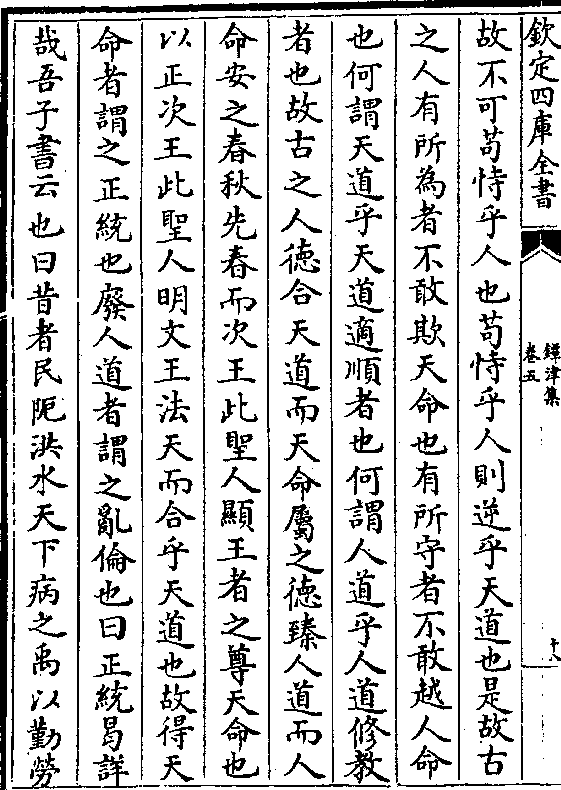 欽定四庫全書
鐔津集
卷五
十八
故不可苟恃乎人也苟恃乎人則逆乎天道也是故古
之人有所為者不敢欺天命也有所守者不敢越人命
也何謂天道乎天道適順者也何謂人道乎人道修教
者也故古之人徳合天道而天命屬之徳臻人道而人
命安之春秋先春而次王此聖人顯王者之尊天命也
以正次王此聖人明文王法天而合乎天道也故得天
命者謂之正統也廢人道者謂之亂倫也曰正統曷詳
哉吾子書云也曰昔者民阨洪水天下病之禹以勤勞